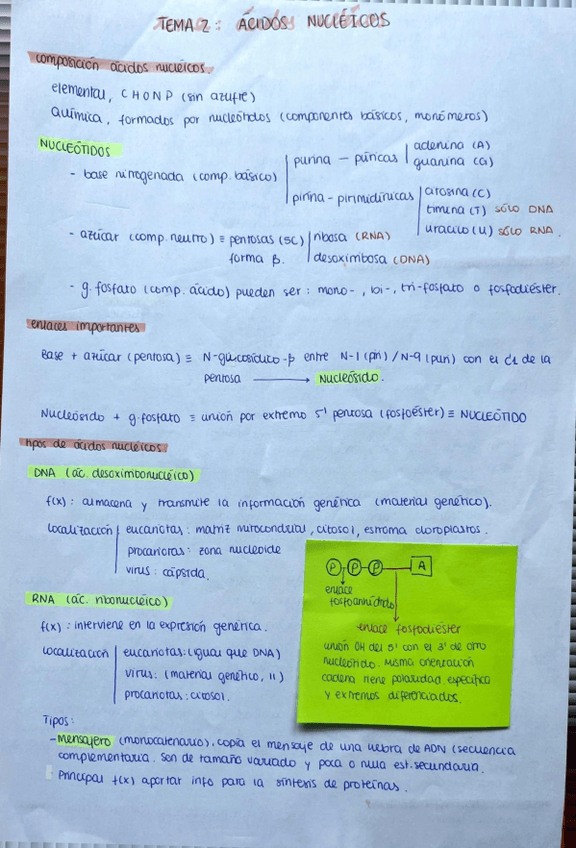 TEMA 2: ÁCIDOS NUCLÉICOS
composición ácidos nucléicos.
elemental, C H O N P (sin azufre)
química, formados por nucleótidos (componentes básicos, monómeros)
NUCLEÓTIDOS
- base nitrogenada (comp. básico)
purina - púricas
adenina (A)
guanina (G)
pirina - pirimidínicas
citosina (C)
timina (T) SÓLO DNA
uracilo (U) SÓLO RNA
- azúcar (comp. neutro) ≡ pentosas (5C)
forma β.
ribosa (RNA)
desoxirribosa (DNA)
- g. fosfato (comp. ácido) pueden ser: mono-, bi-, tri-fosfato o fosfodiéster.
enlaces importantes
Base + azúcar (pentosa) ≡ N-glucosídico-β entre N-1 (piri) / N-9 (puri) con el C1 de la
pentosa → Nucleósido.
Nucleósido + g. fosfato ≡ unión por extremo 5' pentosa (fosfoéster) ≡ NUCLEÓTIDO
tipos de ácidos nucleicos.
DNA (ác. desoxirribonucléico)
f(x): almacena y transmite la información genética (material genético).
localización
eucariotas: matriz mitocondrial, citosol, estroma cloroplastos.
procariotas: zona nucleoide
virus: cápsida.
RNA (ác. ribonucléico)
f(x): interviene en la expresión genética.
localización
eucariotas: (igual que DNA)
virus: (material genético, 11)
procariotas: citosol.
P P P A
enlace
fosfoanhídrido
enlace fosfodiéster
unión OH del 5' con el 3' de otro
nucleótido. Misma orientación
cadena tiene polaridad específica
y extremos diferenciados.
Tipos:
- Mensajero (monocatenario). copia el mensaje de una hebra de ADN (secuencia
complementaria. Son de tamaño variado y poca o nula est. secundaria.
Principal f(x) aportar info para la síntesis de proteínas.